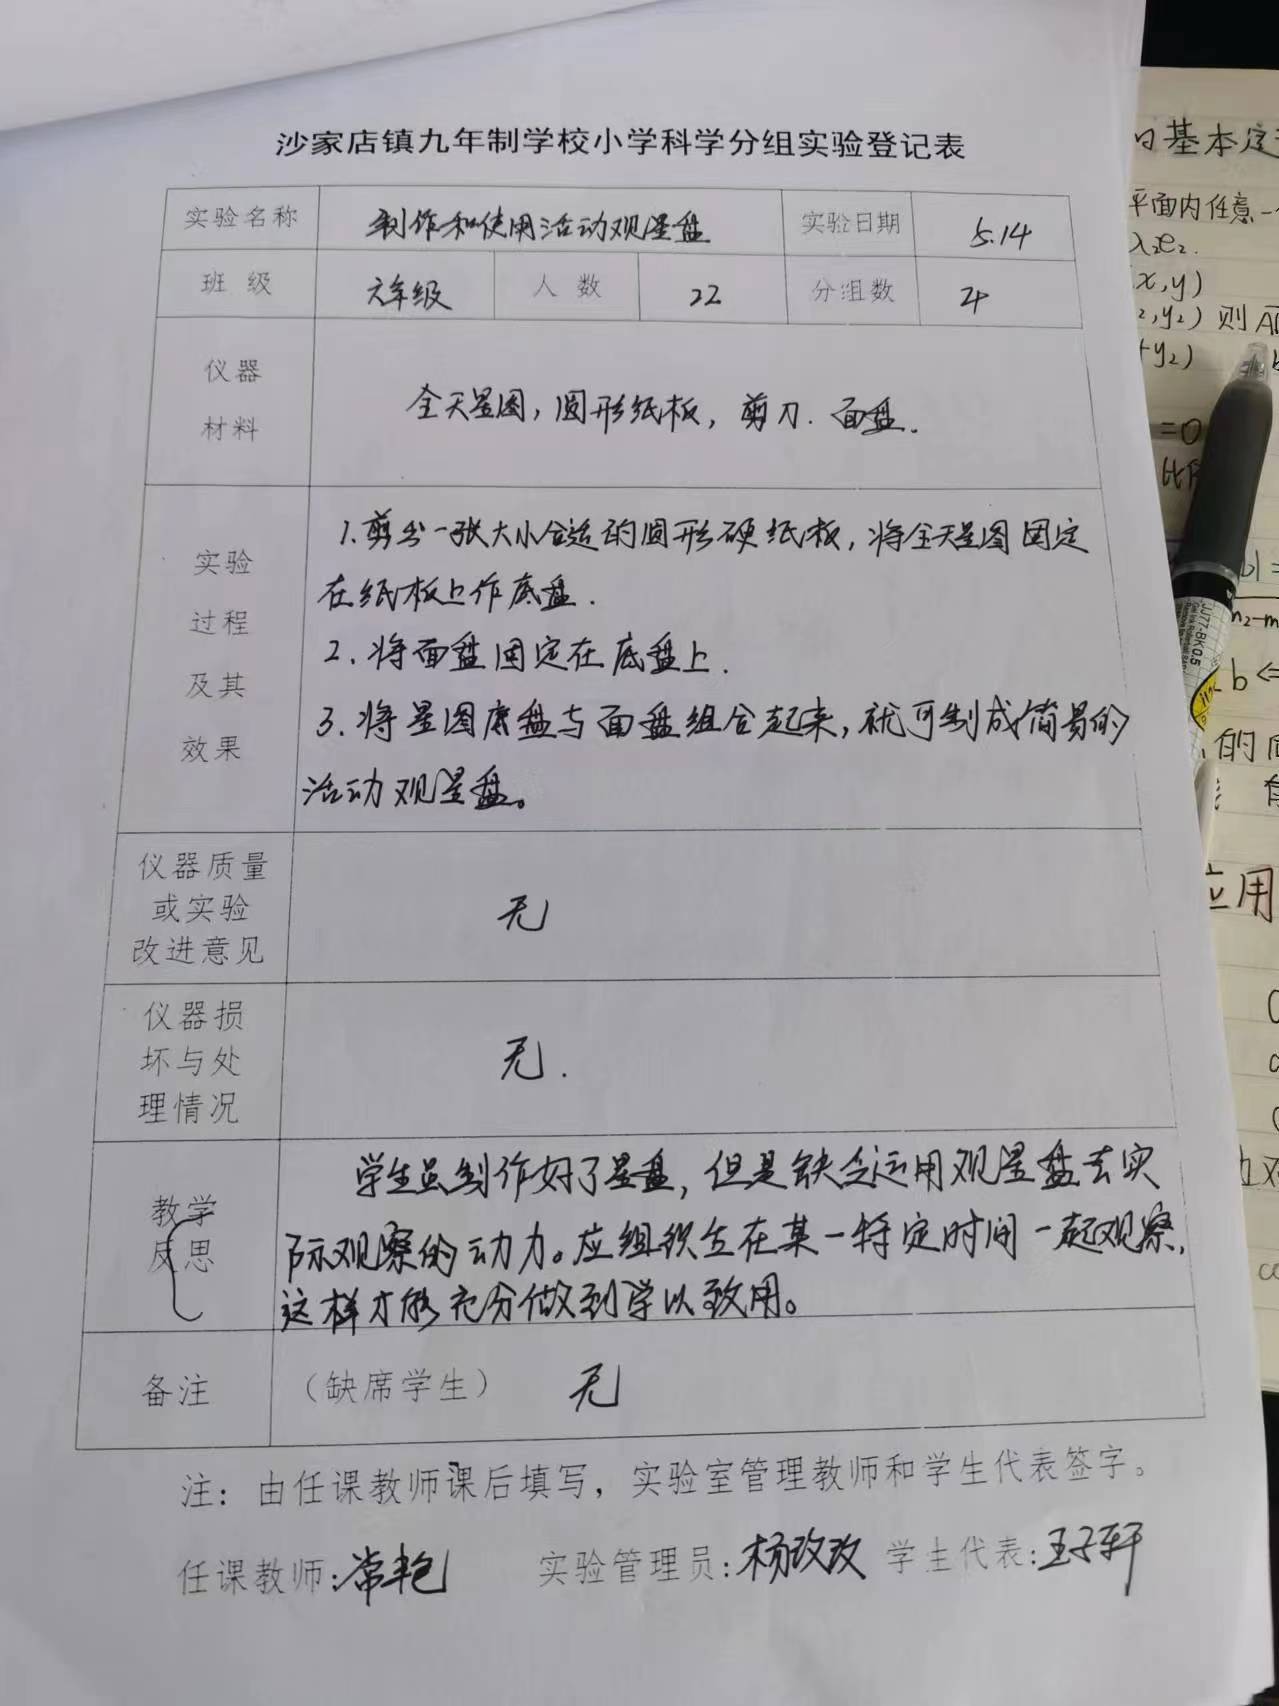 沙家店镇九年制学校小学科学分组实验登记表
实验名称 制作和使用活动观星盘 实验日期 5.14
班级 六年级 人数 22 分组数 4
仪器
材料
全天星图，圆形纸板，剪刀．面盘．
实验
过程
及其
效果
1.剪出一张大小合适的圆形硬纸板，将全天星图固定
在纸板上作底盘．
2．将面盘固定在底盘上．
3．将星图底盘与面盘组合起来，就可制成简易的
活动观星盘。
仪器质量
或实验
改进意见
无
仪器损
坏与处
理情况
无．
教学
反思
学生虽制作好了星盘，但是缺乏运用观星盘去实
际观察的动力。应组织生在某一特定时间一起观察，
这样才能充分做到学以致用。
备注 （缺席学生） 无
注：由任课教师课后填写，实验室管理教师和学生代表签字。
任课教师：常艳 实验管理员：杨玫玫 学生代表：王子轩
的基本定
平面内任意一
λ₂e₂.
(x,y)
y₂) 则
+y₂)
=0
JJ77-BK 0.5
b
的
应用